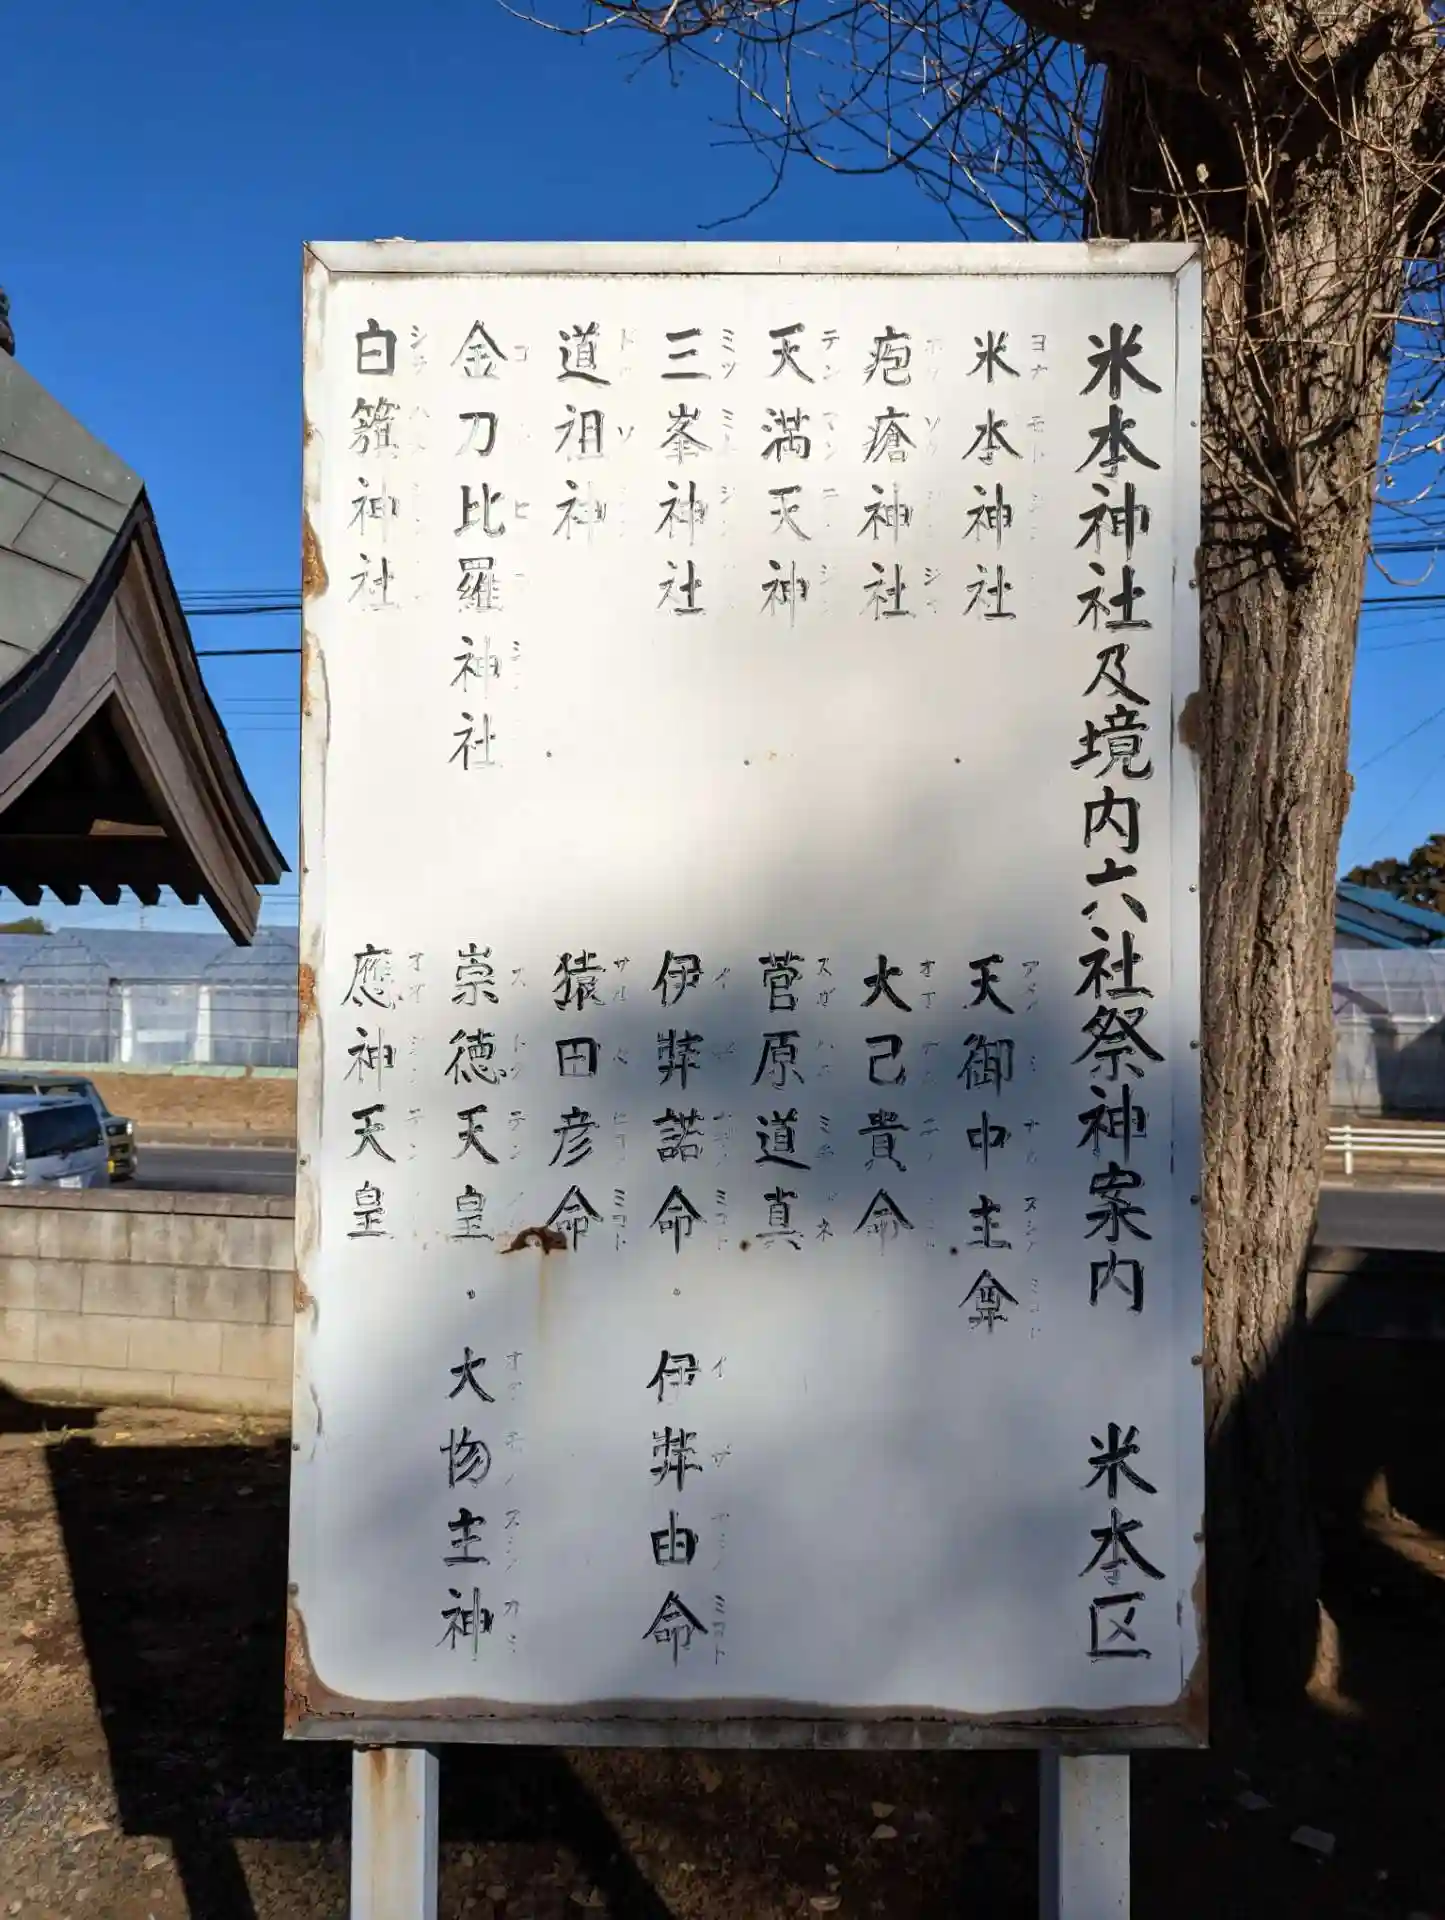 米本神社及境内六社祭神案内 米本区
米本神社 天御中主命
疱瘡神社 大己貴命
天満天神 菅原道真
三峯神社 伊弉諾命・伊弉冉命
道祖神 猿田彦命
金刀比羅神社 崇徳天皇・大物主神
白籏神社 應神天皇